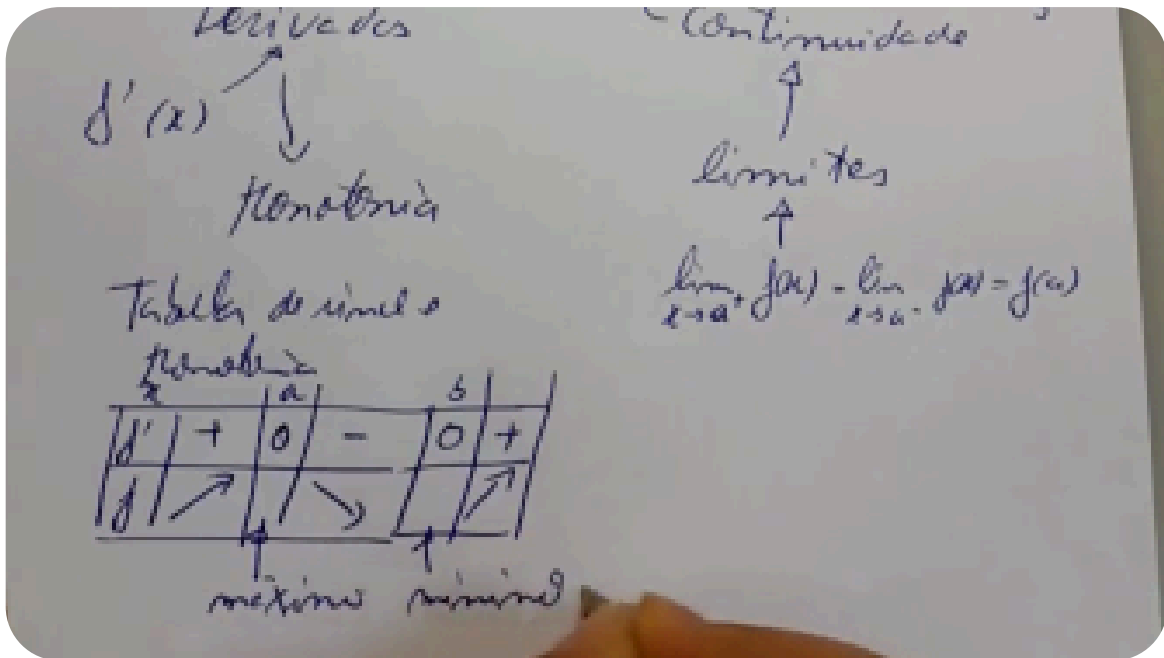 Derivadas
f'(x)
Monotonia
Tabela de sinal e
Monotonia
x a b
f' + 0 - 0 +
f ↗ ↘ ↗
máximo mínimo
Continuidade
limites
lim x→a⁺ f(x) = lim x→a⁻ f(x) = f(a)